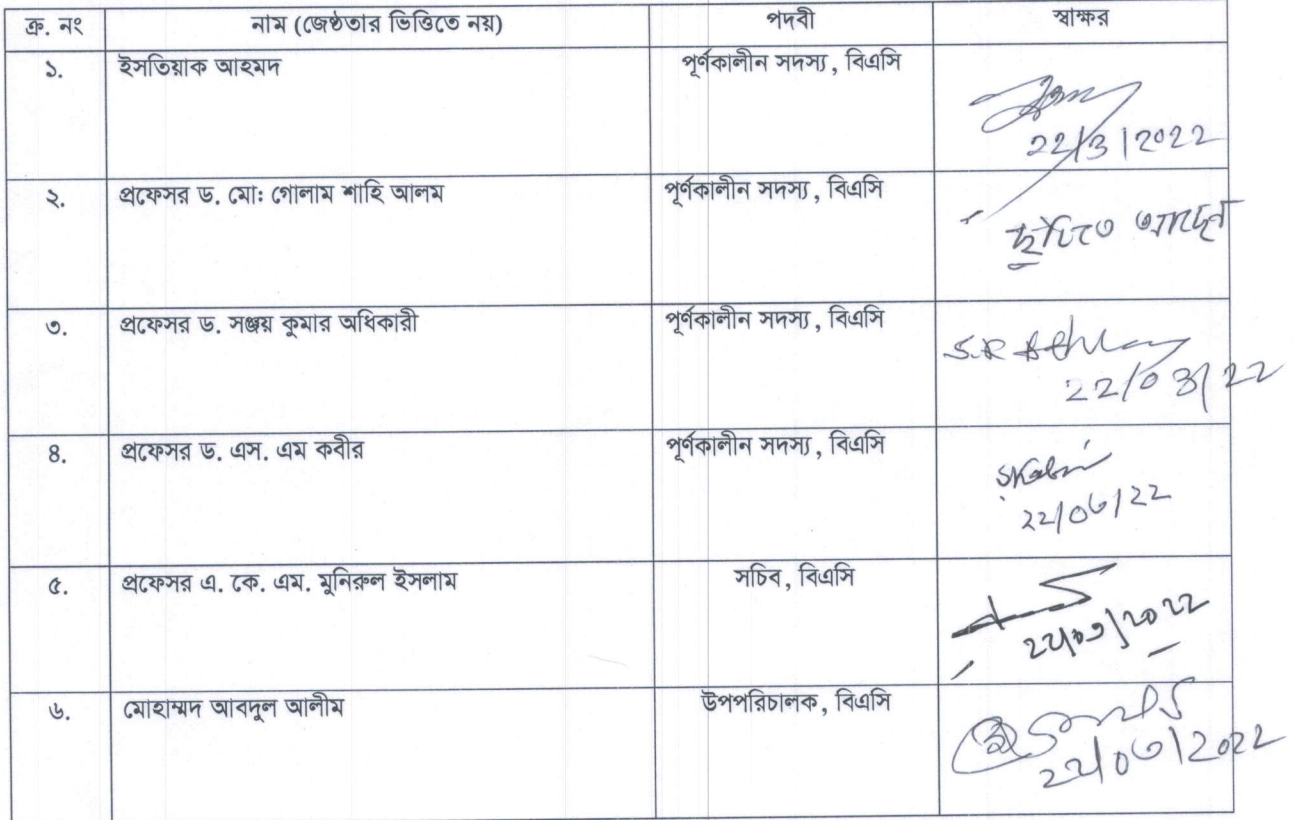 ক্র. নং নাম (জেষ্ঠতার ভিত্তিতে নয়) পদবী স্বাক্ষর
১. ইসতিয়াক আহমদ পূর্ণকালীন সদস্য, বিএসি
22/3/2022
২. প্রফেসর ড. মো: গোলাম শাহি আলম পূর্ণকালীন সদস্য, বিএসি
ছুটিতে আছেন
৩. প্রফেসর ড. সঞ্জয় কুমার অধিকারী পূর্ণকালীন সদস্য, বিএসি
22/03/22
৪. প্রফেসর ড. এস. এম কবীর পূর্ণকালীন সদস্য, বিএসি
SKabir
22/০৩/22
৫. প্রফেসর এ. কে. এম. মুনিরুল ইসলাম সচিব, বিএসি
22/০৩/2022
৬. মোহাম্মদ আবদুল আলীম উপপরিচালক, বিএসি
22/০৩/2022